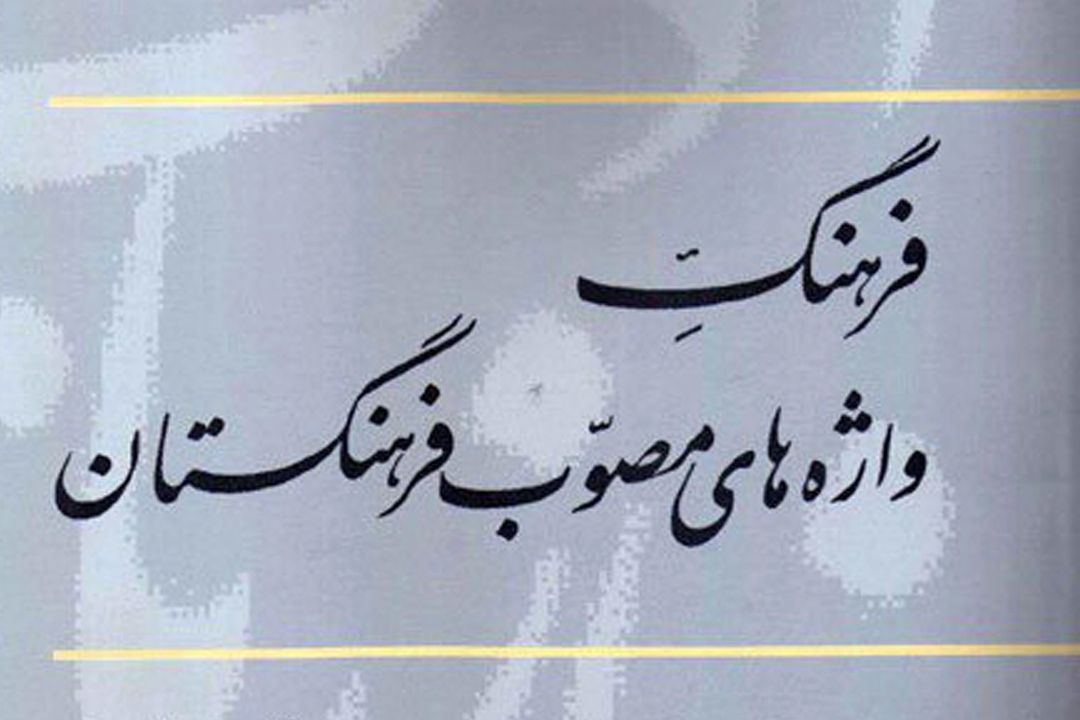 فرهنگِ
واژه های مصوّب فرهنگستان